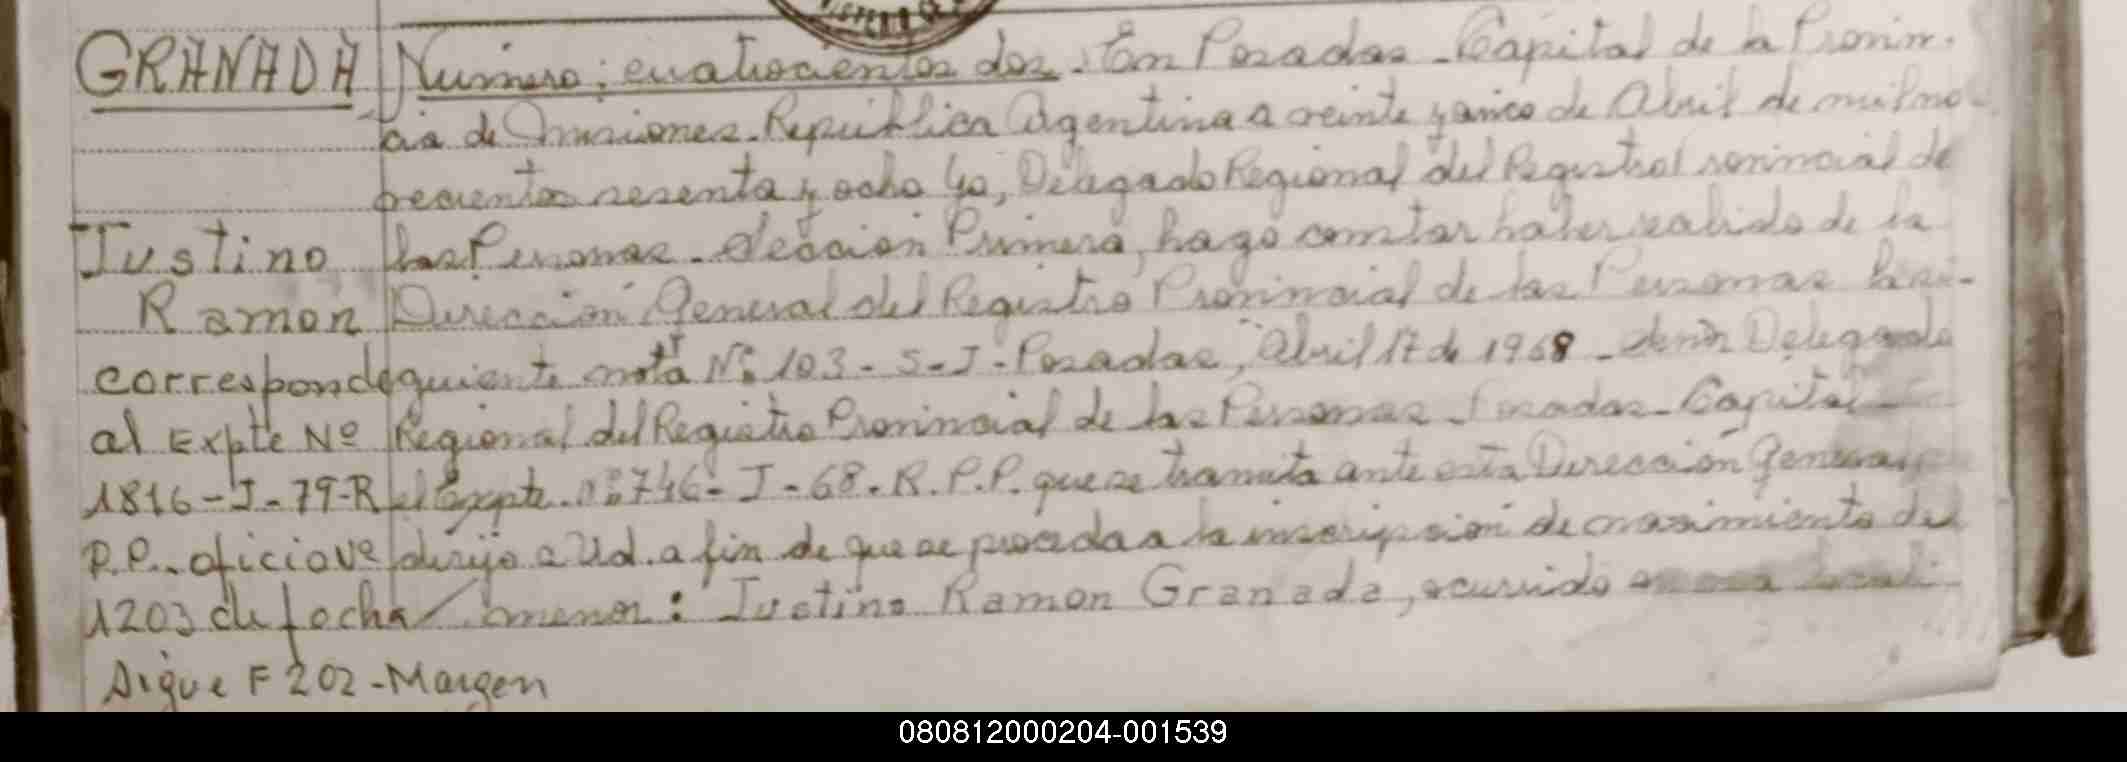 GRANADA
Justino
Ramon
corresponde
al Expte Nº
1816-J-79-R
P.P. oficio Nº
1203 de fecha
Sigue F 202 - Margen
Número: cuatrocientos dos. En Posadas - Capital de la Provin-
cia de Misiones. República Argentina a veinte y cinco de Abril de mil no-
vecientos sesenta y ocho Yo, Delegado Regional del Registro Provincial de
las Personas. Sección Primera, hago constar haber recibido de la
Dirección General del Registro Provincial de las Personas la si-
guiente nota Nº 103 - S-J - Posadas, Abril 17 de 1968 - Señor Delegado
Regional del Registro Provincial de las Personas - Posadas - Capital
el Expte. nº 746 - J - 68. R.P.P. que se tramita ante esta Dirección General
dirijo a Ud. a fin de que se proceda a la inscripsión de nasimiento del
menor: Justino Ramon Granada, ocurrido
080812000204-001539